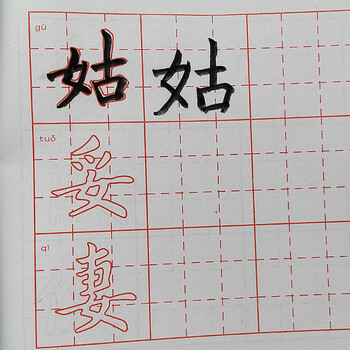 gū
姑 姑
tuǒ
妥
qī
妻